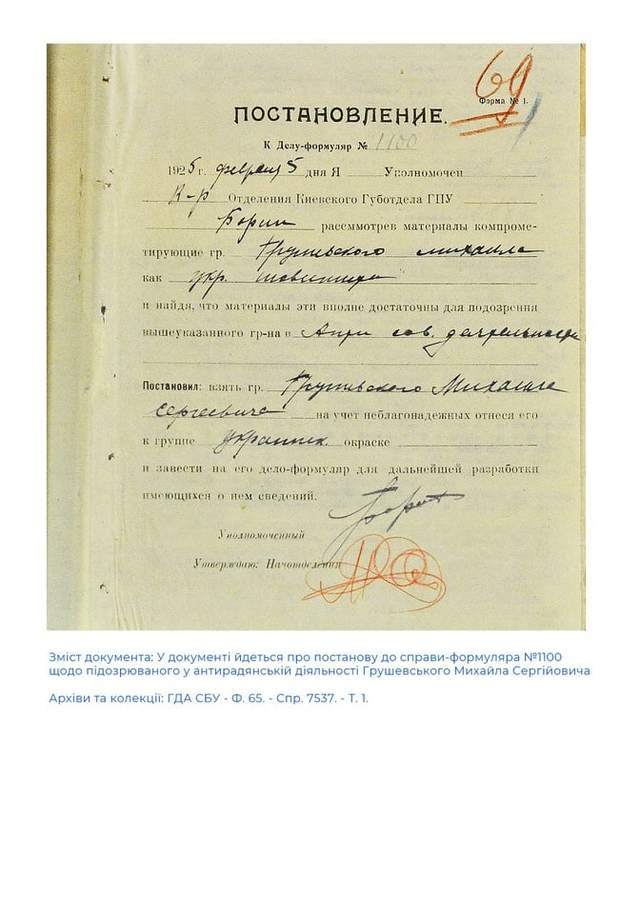 69
Форма № 1.
ПОСТАНОВЛЕНИЕ.
К Делу-формуляр № 1100
1925 г. февраля 5 дня Я Уполномочен
К-р Отделения Киевского Губотдела ГПУ
рассмотрев материалы компроме-
тирующие гр. Грушевского Михаила
как укр. шовиниста
и найдя, что материалы эти вполне достаточны для подозрения
вышеуказанного гр-на в Анти сов. деятельности
Постановил: взять гр. Грушевского Михаила
Сергеевича на учет неблагонадежных отнеся его
к группе окраске
и завести на его дело-формуляр для дальнейшей разработки
имеющихся о нем сведений.
Уполномоченный
Утверждаю: Начотделения
Зміст документа: У документі йдеться про постанову до справи-формуляра №1100
щодо підозрюваного у антирадянській діяльності Грушевського Михайла Сергійовича
Архіви та колекції: ГДА СБУ - Ф. 65. - Спр. 7537. - Т. 1.